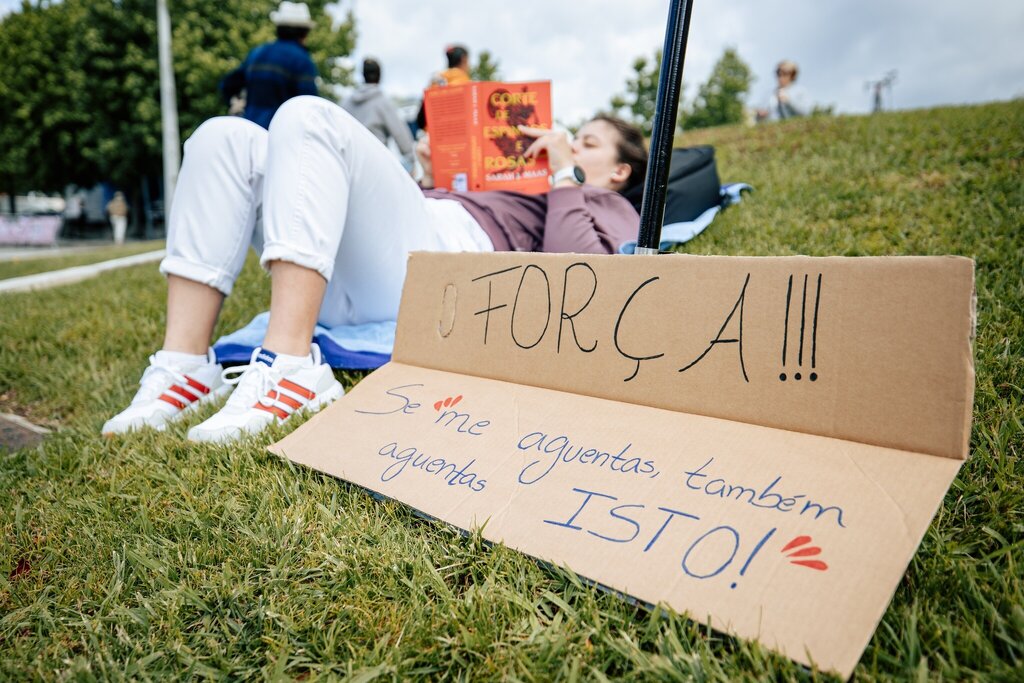 CORTE
DE
ESPINHOS
E
ROSAS
SARAH J. MAAS
FORÇA!!!
Se me aguentas, também
aguentas ISTO!